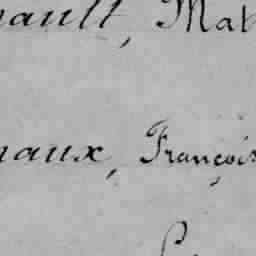 nault, Mat
naux, François